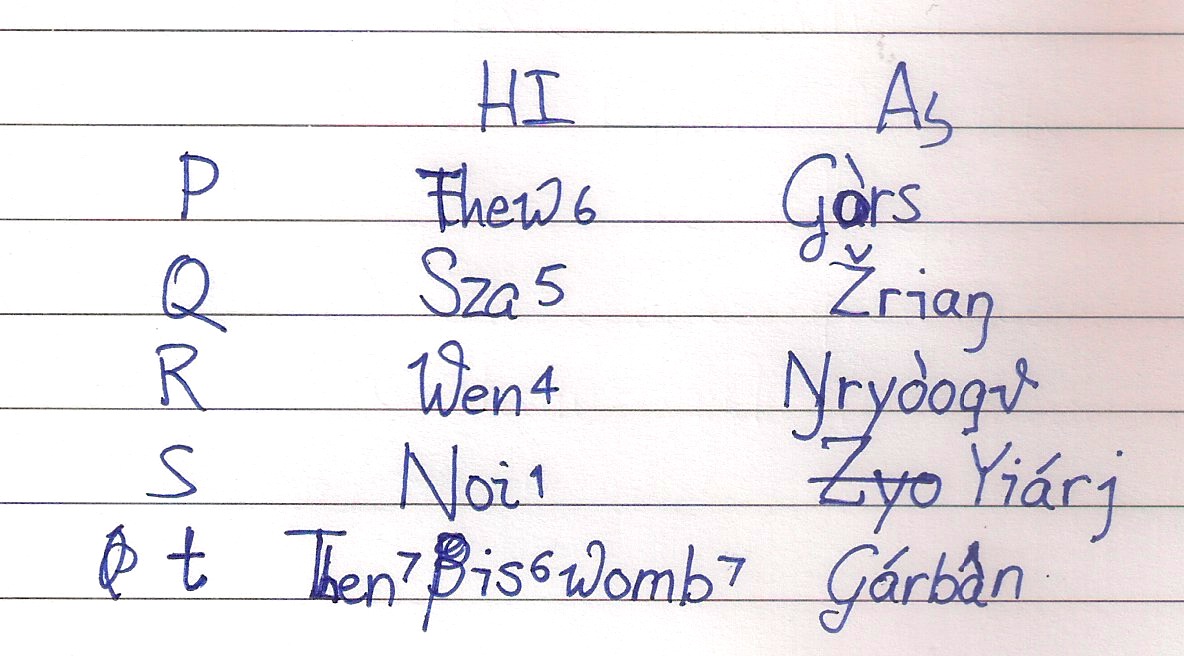 HI Aꞩ
P Thew6 Gòrs
Q Sza5 Žriaŋ
R Wen4 Ŋryòogỽ
S Noi1 Zyo Yiárj
t Then7Bis6womb7 Gárbân